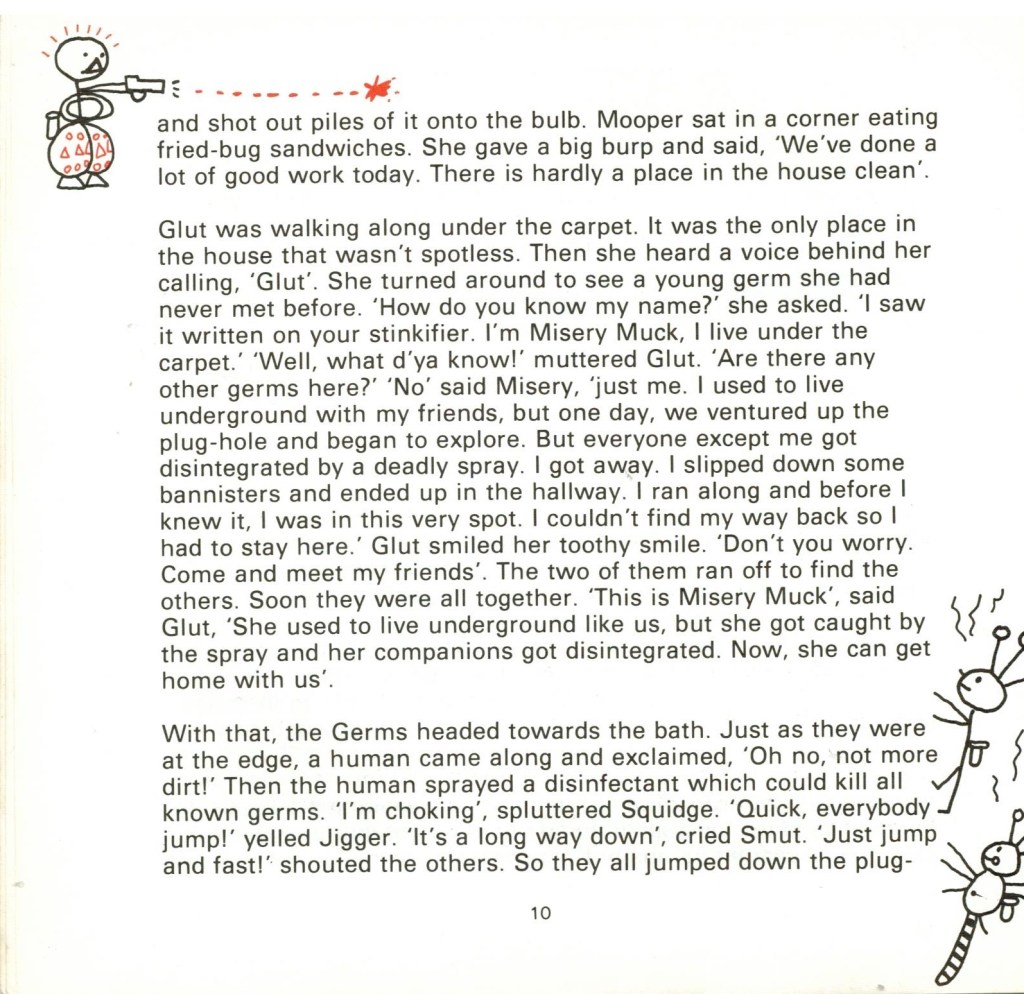 and shot out piles of it onto the bulb. Mooper sat in a corner eating
fried-bug sandwiches. She gave a big burp and said, ‘We’ve done a
lot of good work today. There is hardly a place in the house clean’.
Glut was walking along under the carpet. It was the only place in
the house that wasn’t spotless. Then she heard a voice behind her
calling, ‘Glut’. She turned around to see a young germ she had
never met before. ‘How do you know my name?’ she asked. ‘I saw
it written on your stinkifier. I’m Misery Muck, I live under the
carpet.’ ‘Well, what d’ya know!’ muttered Glut. ‘Are there any
other germs here?’ ‘No’ said Misery, ‘just me. I used to live
underground with my friends, but one day, we ventured up the
plug-hole and began to explore. But everyone except me got
disintegrated by a deadly spray. I got away. I slipped down some
bannisters and ended up in the hallway. I ran along and before I
knew it, I was in this very spot. I couldn’t find my way back so I
had to stay here.’ Glut smiled her toothy smile. ‘Don’t you worry.
Come and meet my friends’. The two of them ran off to find the
others. Soon they were all together. ‘This is Misery Muck’, said
Glut, ‘She used to live underground like us, but she got caught by
the spray and her companions got disintegrated. Now, she can get
home with us’.
With that, the Germs headed towards the bath. Just as they were
at the edge, a human came along and exclaimed, ‘Oh no, not more
dirt!’ Then the human sprayed a disinfectant which could kill all
known germs. ‘I’m choking’, spluttered Squidge. ‘Quick, everybody
jump!’ yelled Jigger. ‘It’s a long way down’, cried Smut. ‘Just jump
and fast!’ shouted the others. So they all jumped down the plug-
10